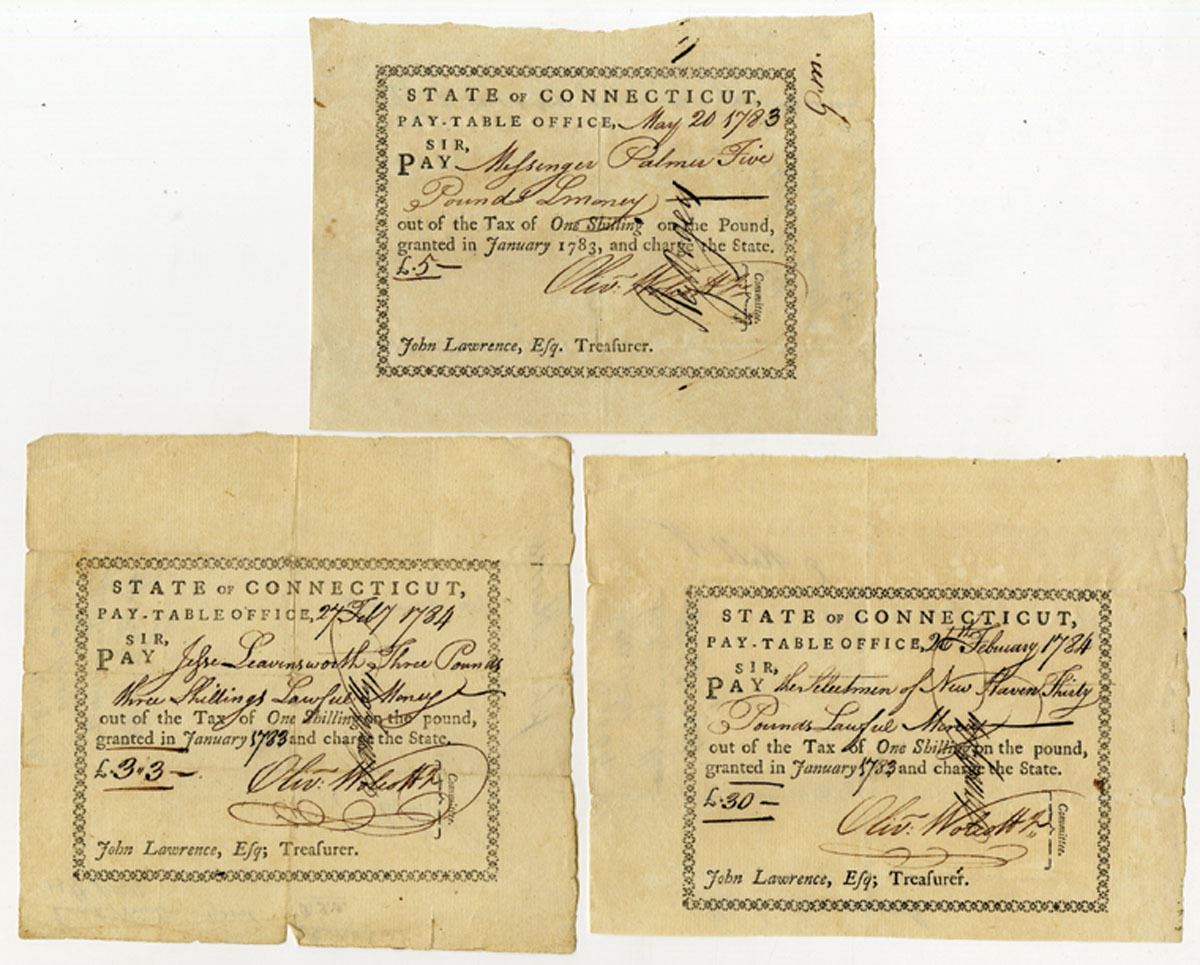 g.m.
STATE OF CONNECTICUT,
PAY-TABLE OFFICE, May 20 1783
SIR,
PAY Meſsinger Palmer Five
Pounds Lmoney
out of the Tax of One Shilling on the Pound,
granted in January 1783, and charge the State.
£.5—
Olivr. Wolcott Jr
Committee.
John Lawrence, Eſq. Treaſurer.
STATE OF CONNECTICUT,
PAY-TABLE OFFICE, 27 Feby 1784
SIR,
PAY Jeſse Leavensworth Three Pounds
three Shillings Lawful Money
out of the Tax of One Shilling on the pound,
granted in January 1783 and charge the State.
£.3"3—
Olivr. Wolcott Jr
Committee.
John Lawrence, Eſq; Treaſurer.
STATE OF CONNECTICUT,
PAY-TABLE OFFICE, February 1784
SIR,
PAY the Selectmen of New Haven Thirty
Pounds Lawful Money
out of the Tax of One Shilling on the pound,
granted in January 1783 and charge the State.
£.30—
Olivr. Wolcott Jr
Committee.
John Lawrence, Eſq; Treaſurer.